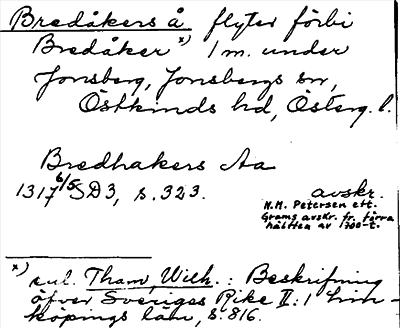 Bredåkers å flyter förbi
Bredåker *) 1 m. under
Jonsberg, Jonsbergs sn,
Östkinds hd, Österg. l.
Bredhakers Aa
1317 6/5 SD3, s. 323.
avskr.
N.M. Petersen eft.
Grams avskr. fr. förra
hälften av 1700-t.
*) enl. Tham, Wilh.: Beskrifning
öfver Sveriges Rike II: 1 Lin-
köpings län, s. 816.